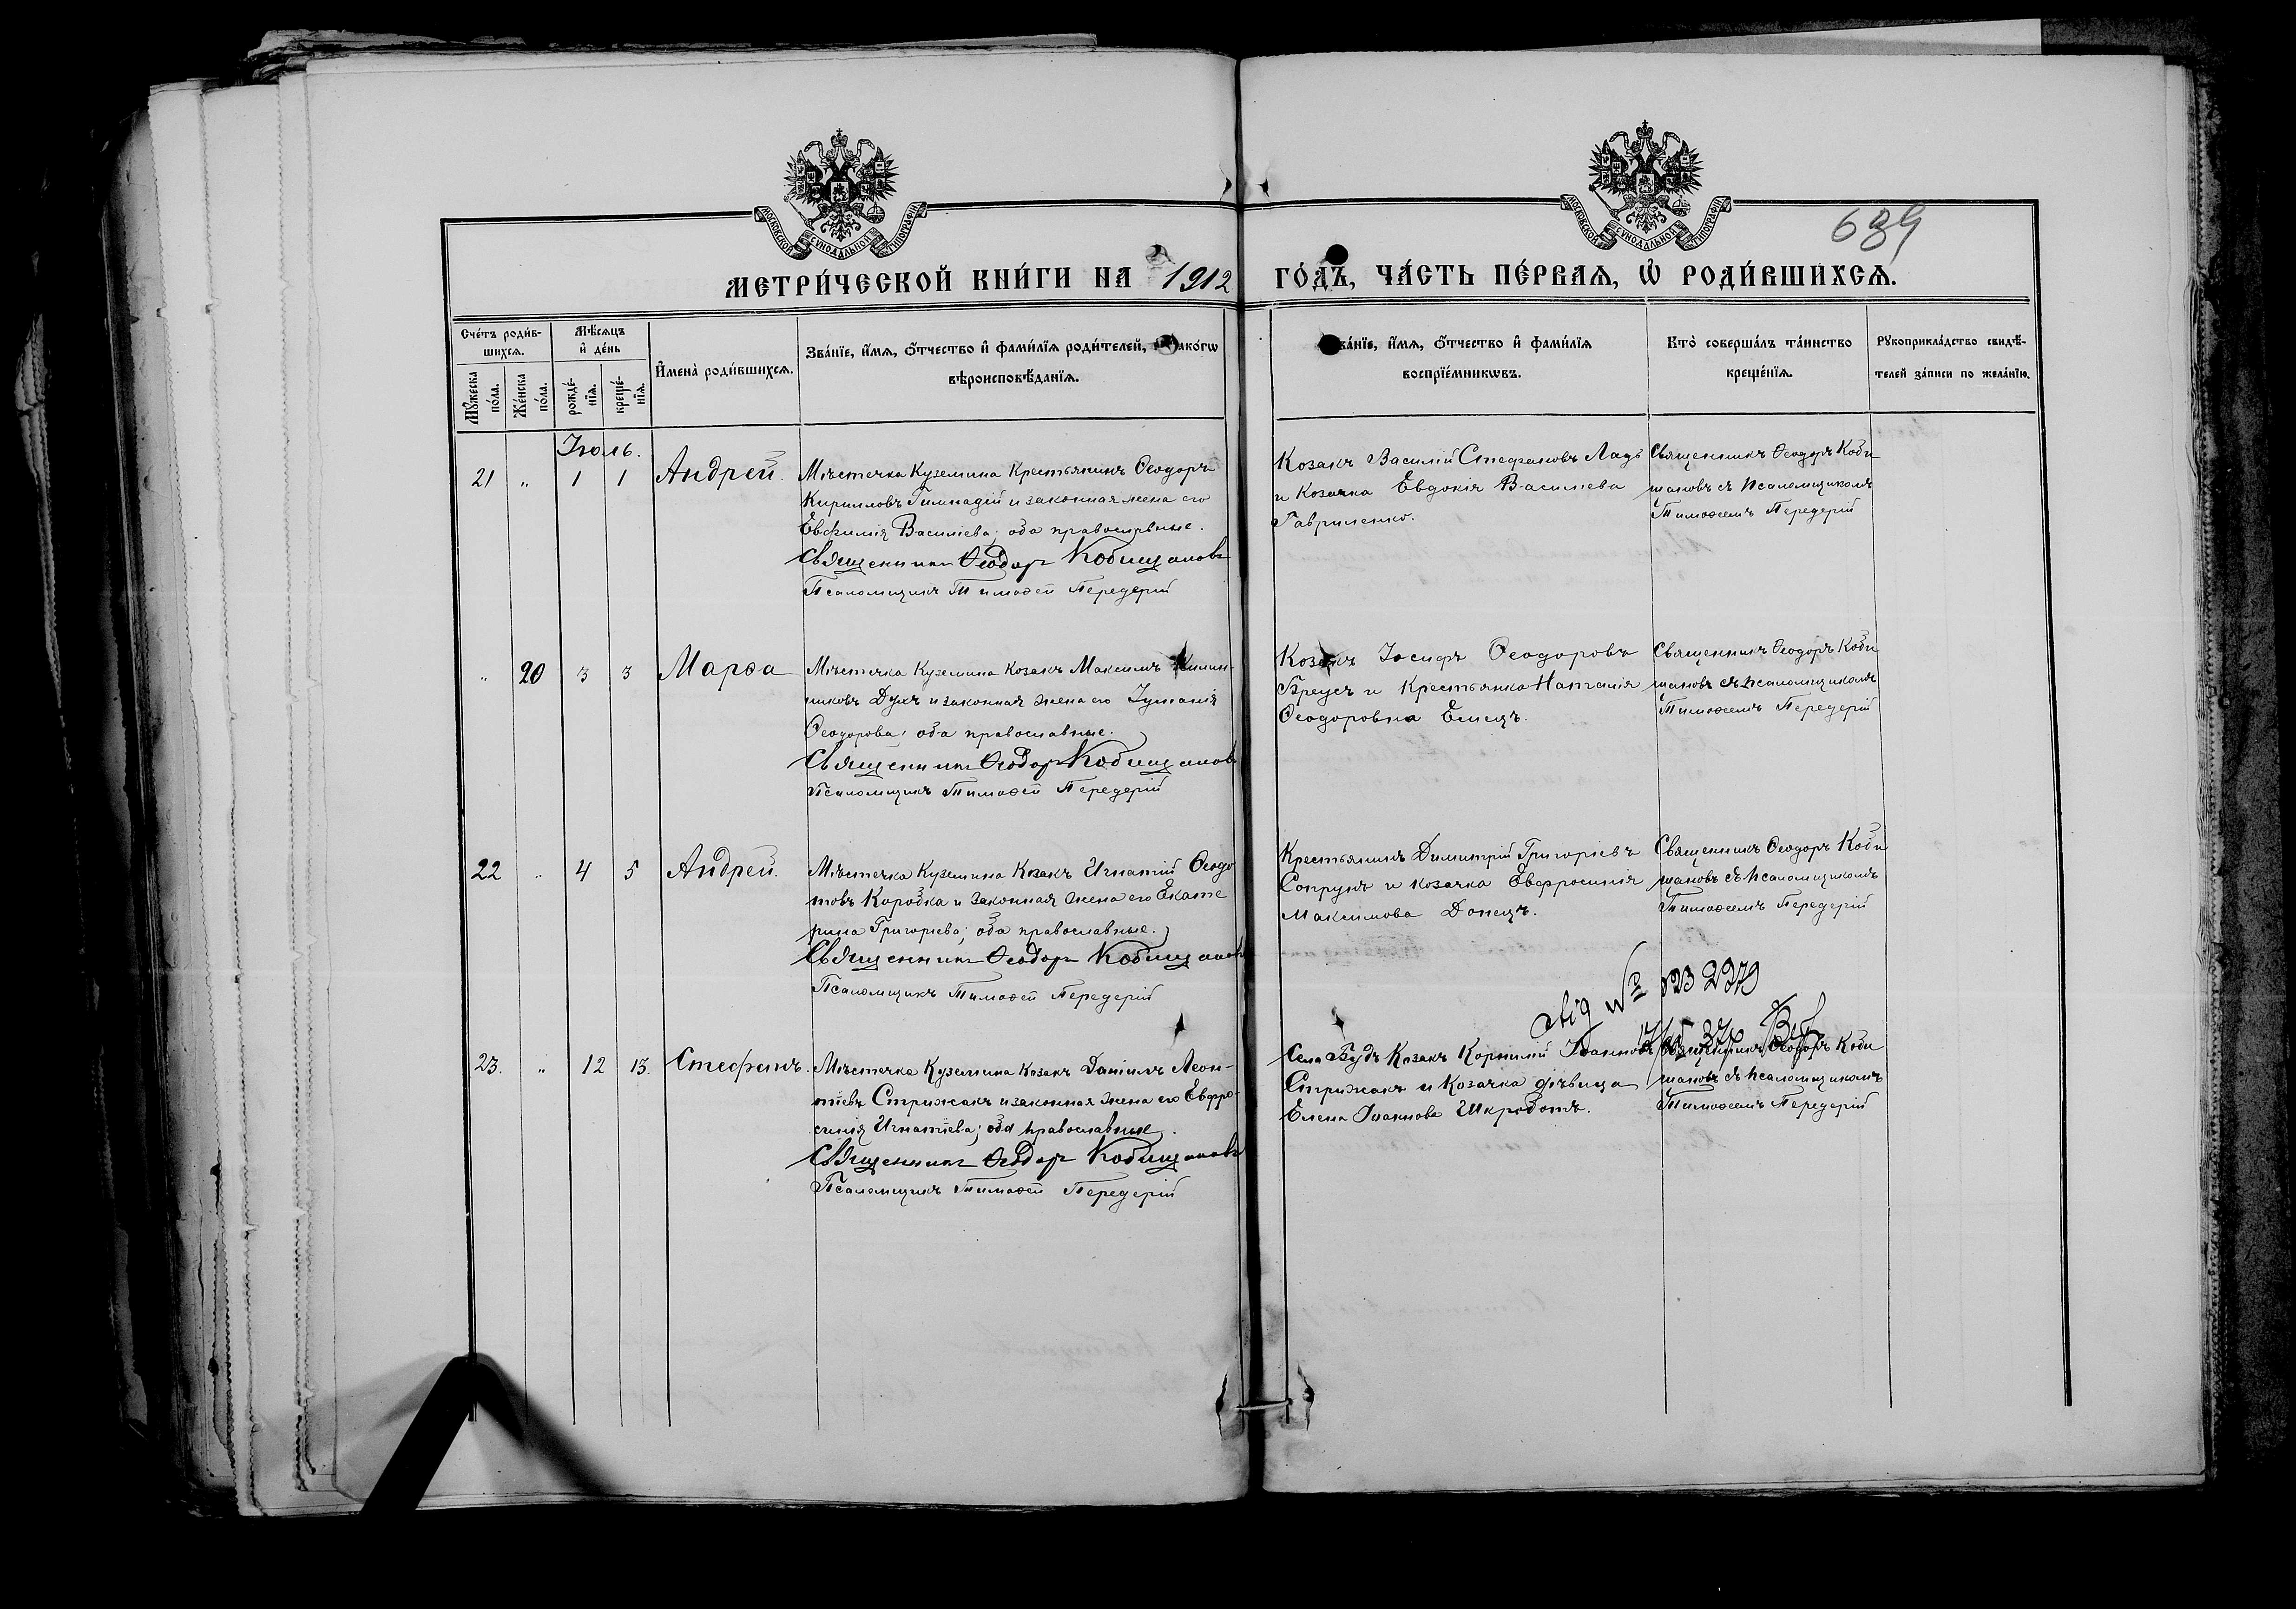 МОСКОВСКОЙ СѴНОДАЛЬНОЙ ТИПОГРАФІИ
МОСКОВСКОЙ СѴНОДАЛЬНОЙ ТИПОГРАФІИ
639
МЕТРИ́ЧЕСКОЙ КНИ́ГИ НА 1912 ГО́ДЪ, ЧА́СТЬ ПЕ́РВАѦ, Ѡ҆ РОДИ́ВШИХСѦ.
Сче́тъ роди́в-
шихсѧ.
Мѣ́сѧцъ
и҆ де́нь
Мꙋ́жеска
по́ла.
Же́нска
по́ла.
рожде́-
нїѧ.
креще́-
нїѧ.
И҆мена̀ роди́вшихсѧ.
Зва́нїе, и҆́мѧ, ѻ҆́тчество и҆ фами́лїѧ роди́телей, ако́гѡ
вѣроисповѣ́данїѧ.
ва́нїе, и҆́мѧ, ѻ҆́тчество и҆ фами́лїѧ
воспрїе́мникѡвъ.
Кто̀ соверша́лъ та́инство
креще́нїѧ.
Рꙋкоприкла́дство свидѣ́-
телей за́писи по жела́нїю.
Іюль.
21 " 1 1 Андрей.
Мѣстечка Куземина Крестьянинъ Ѳеодоръ
Кирилловъ и законная жена его
Евфимія Васильева; оба православные.
Священникъ Ѳеодоръ Кобищановъ
Псаломщикъ Тимоѳей Передерій
Козакъ Василій Стефановъ Ладъ
и Козачка Евдокія Васильева
Гавриленко.
Священникъ Ѳеодоръ Коби
щановъ съ псаломщикомъ
Тимоѳеемъ Передерій
" 20 3 3 Марѳа
Мѣстечка Куземина Козакъ Максимъ
никовъ Духъ и законная жена его Іуліанія
Ѳеодорова; оба православные.
Священникъ Ѳеодоръ Кобищановъ
Псаломщикъ Тимоѳей Передерій
Козакъ Іосифъ Ѳеодоровъ
Бреусъ и Крестьянка Наталія
Ѳеодоровна Елецъ.
Священникъ Ѳеодоръ Коби
щановъ съ псаломщикомъ
Тимоѳеемъ Передерій
22 " 4 5 Андрей.
Мѣстечка Куземина Козакъ Игнатій Ѳеодо
товъ Коробка и законная жена его Екате
рина Григорьева; оба православные.
Священникъ Ѳеодоръ Кобищановъ
Псаломщикъ Тимоѳей Передерій
Крестьянинъ Димитрій Григоріевъ
Сопрунъ и козачка Евфросинія
Максимова Донецъ.
Священникъ Ѳеодоръ Коби
щановъ съ псаломщикомъ
Тимоѳеемъ Передерій
23. " 12 13. Стефанъ.
Мѣстечка Куземина Козакъ Даніилъ Леон-
тіевъ Стрижакъ и законная жена его Евфро-
синія Игнатіева; оба православные.
Священникъ Ѳеодоръ Кобищановъ
Псаломщикъ Тимоѳей Передерій
Села Будъ Козакъ Корнилій Іоанновъ
Стрижакъ и Козачка дѣвица
Елена Іоаннова Шкроботъ.
Священникъ Ѳеодоръ Коби
щановъ съ псаломщикомъ
Тимоѳеемъ Передерій